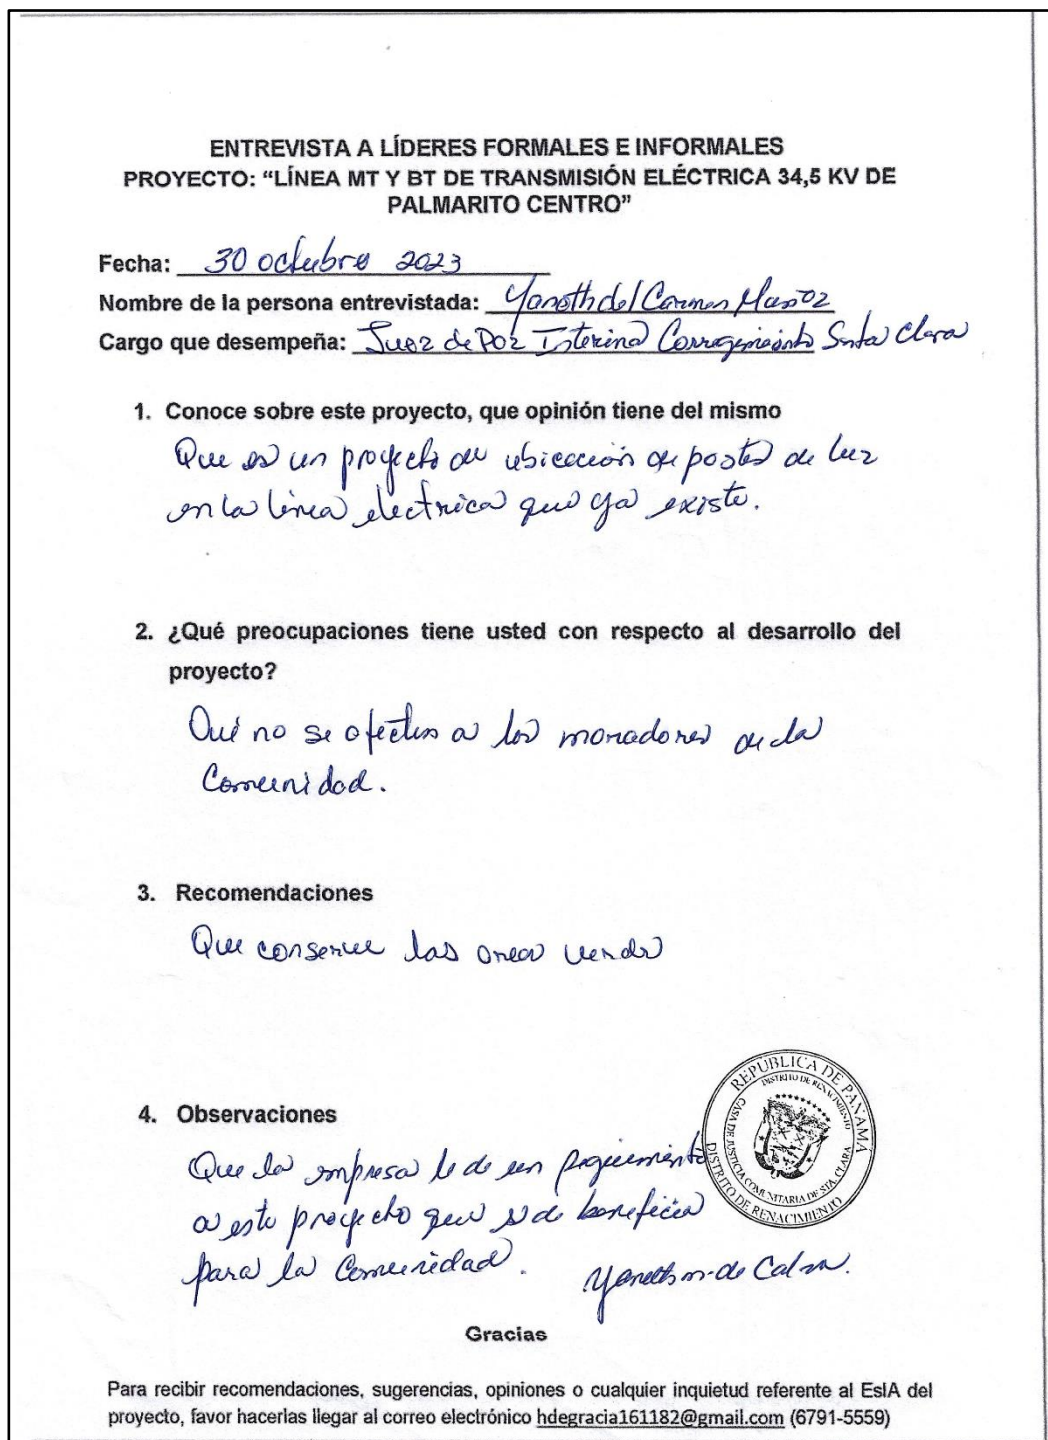 ENTREVISTA A LÍDERES FORMALES E INFORMALES
PROYECTO: “LÍNEA MT Y BT DE TRANSMISIÓN ELÉCTRICA 34,5 KV DE
PALMARITO CENTRO”
Fecha: 30 octubre 2023
Nombre de la persona entrevistada: Yaneth del Carmen Muñoz
Cargo que desempeña: Juez de Paz Interina Corregimiento Santa Clara
1. Conoce sobre este proyecto, que opinión tiene del mismo
Que es un proyecto de ubicación de postes de luz
en la línea electrica que ya existe.
2. ¿Qué preocupaciones tiene usted con respecto al desarrollo del
proyecto?
Qué no se afecten a los moradores de la
Comunidad.
3. Recomendaciones
Que conserve las area verde
REPUBLICA DE PANAMÁ
DISTRITO DE RENACIMIENTO
CASA DE JUSTICIA COMUNITARIA DE STA. CLARA
DISTRITO DE RENACIMIENTO
4. Observaciones
Que la empresa le de un
a este proyecto que es de beneficio
para la Comunidad. Yaneth m. de
Gracias
Para recibir recomendaciones, sugerencias, opiniones o cualquier inquietud referente al EsIA del
proyecto, favor hacerlas llegar al correo electrónico hdegracia161182@gmail.com (6791-5559)